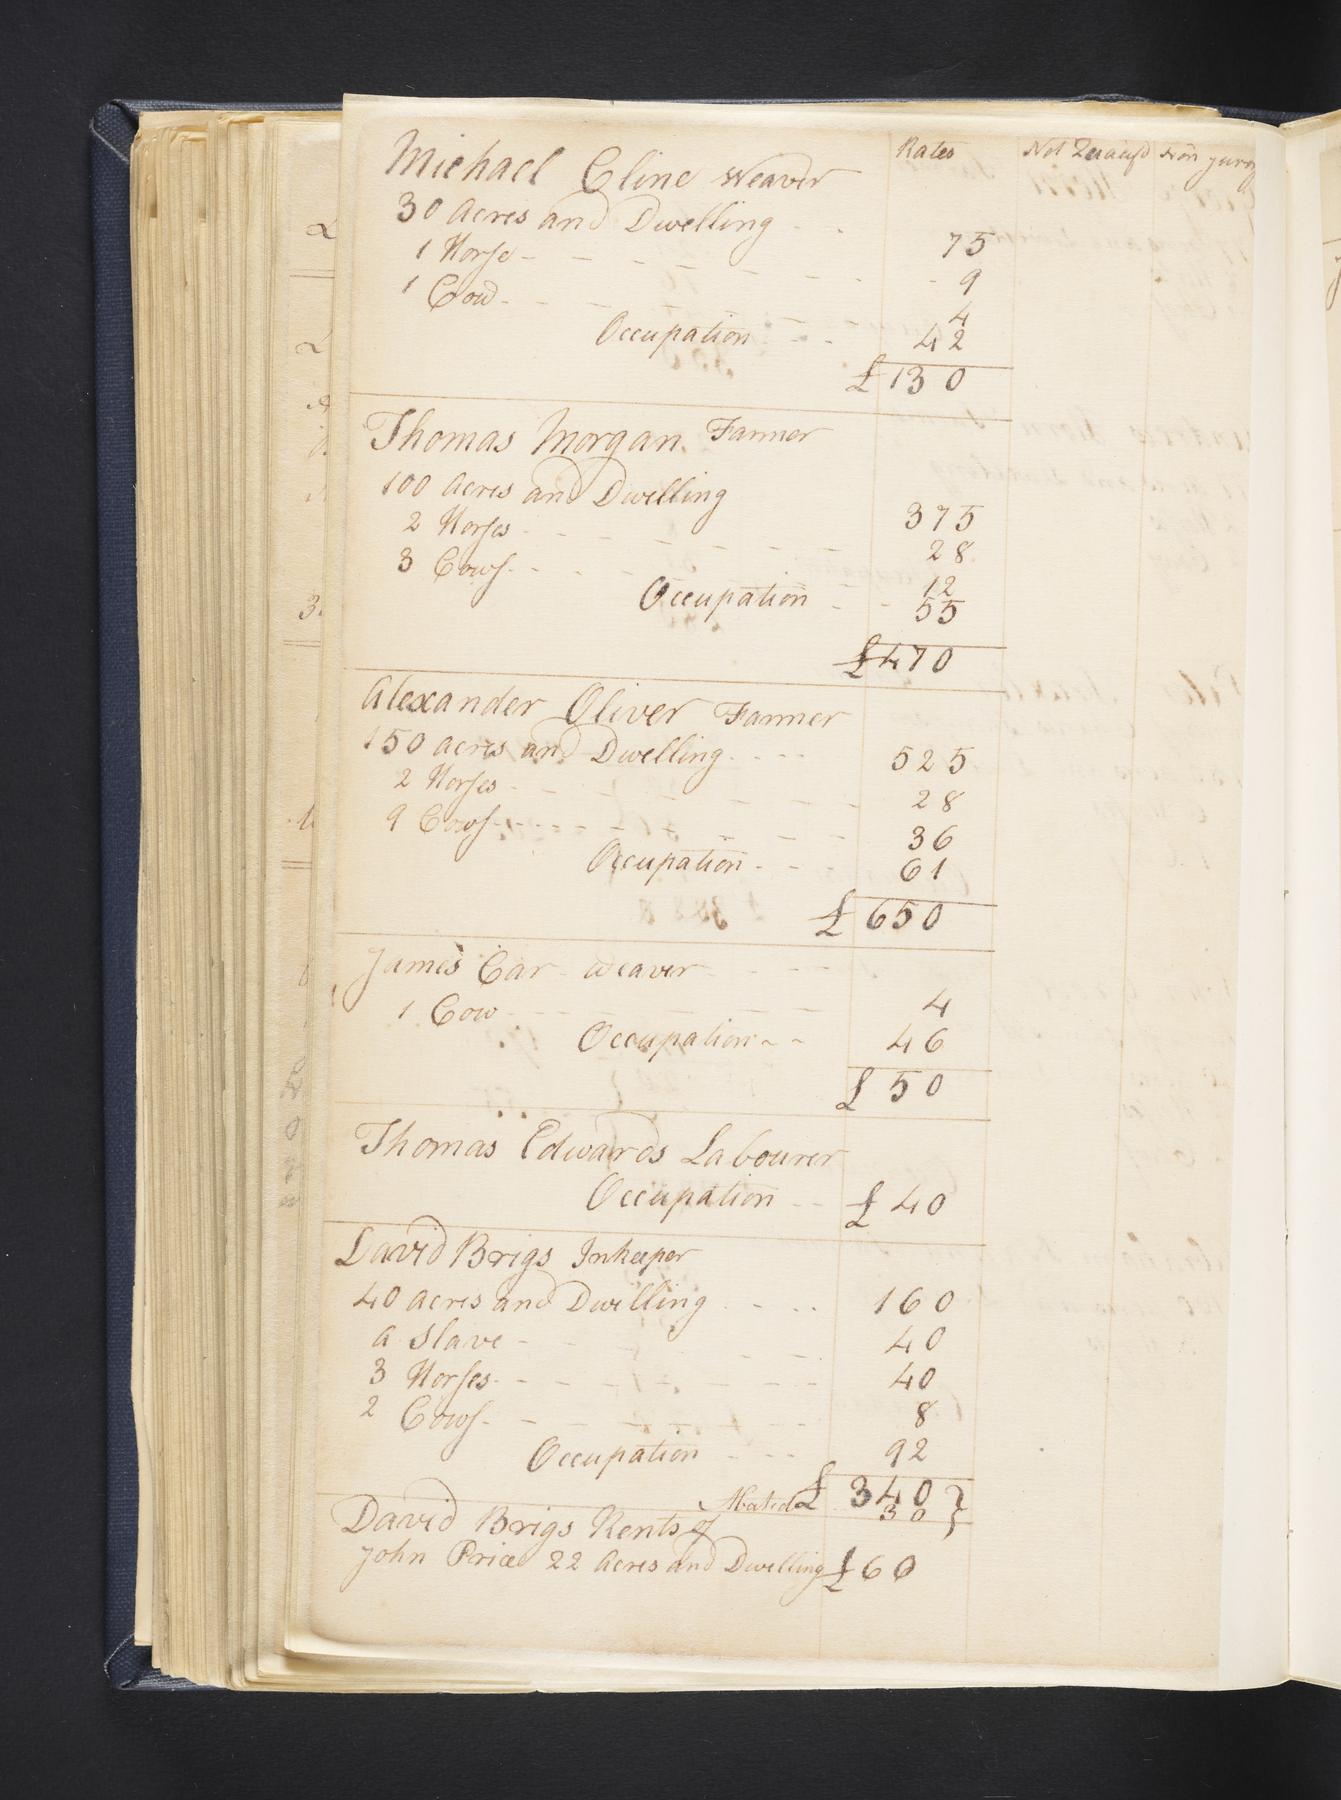 Rates
Michael Cline Weaver
30 Acres and Dwelling 75
1 Horse 9
1 Cow 4
Occupation 42
£ 130
Thomas Morgan Farmer
100 Acres and Dwelling 375
2 Horses 28
3 Cows 12
Occupation 55
£ 470
Alexander Oliver Farmer
150 acres and Dwelling 525
2 Horses 28
9 Cows 36
Occupation 61
£ 650
James Car Weaver
1 Cow 4
Occupation 46
£ 50
Thomas Edwards Labourer
Occupation £ 40
David Brigs Inkeeper
40 Acres and Dwelling 160
a Slave 40
3 Horses 40
2 Cows 8
Occupation 92
£ 340
Abated 30
David Brigs Rents of
John Price 22 Acres and Dwelling £ 60